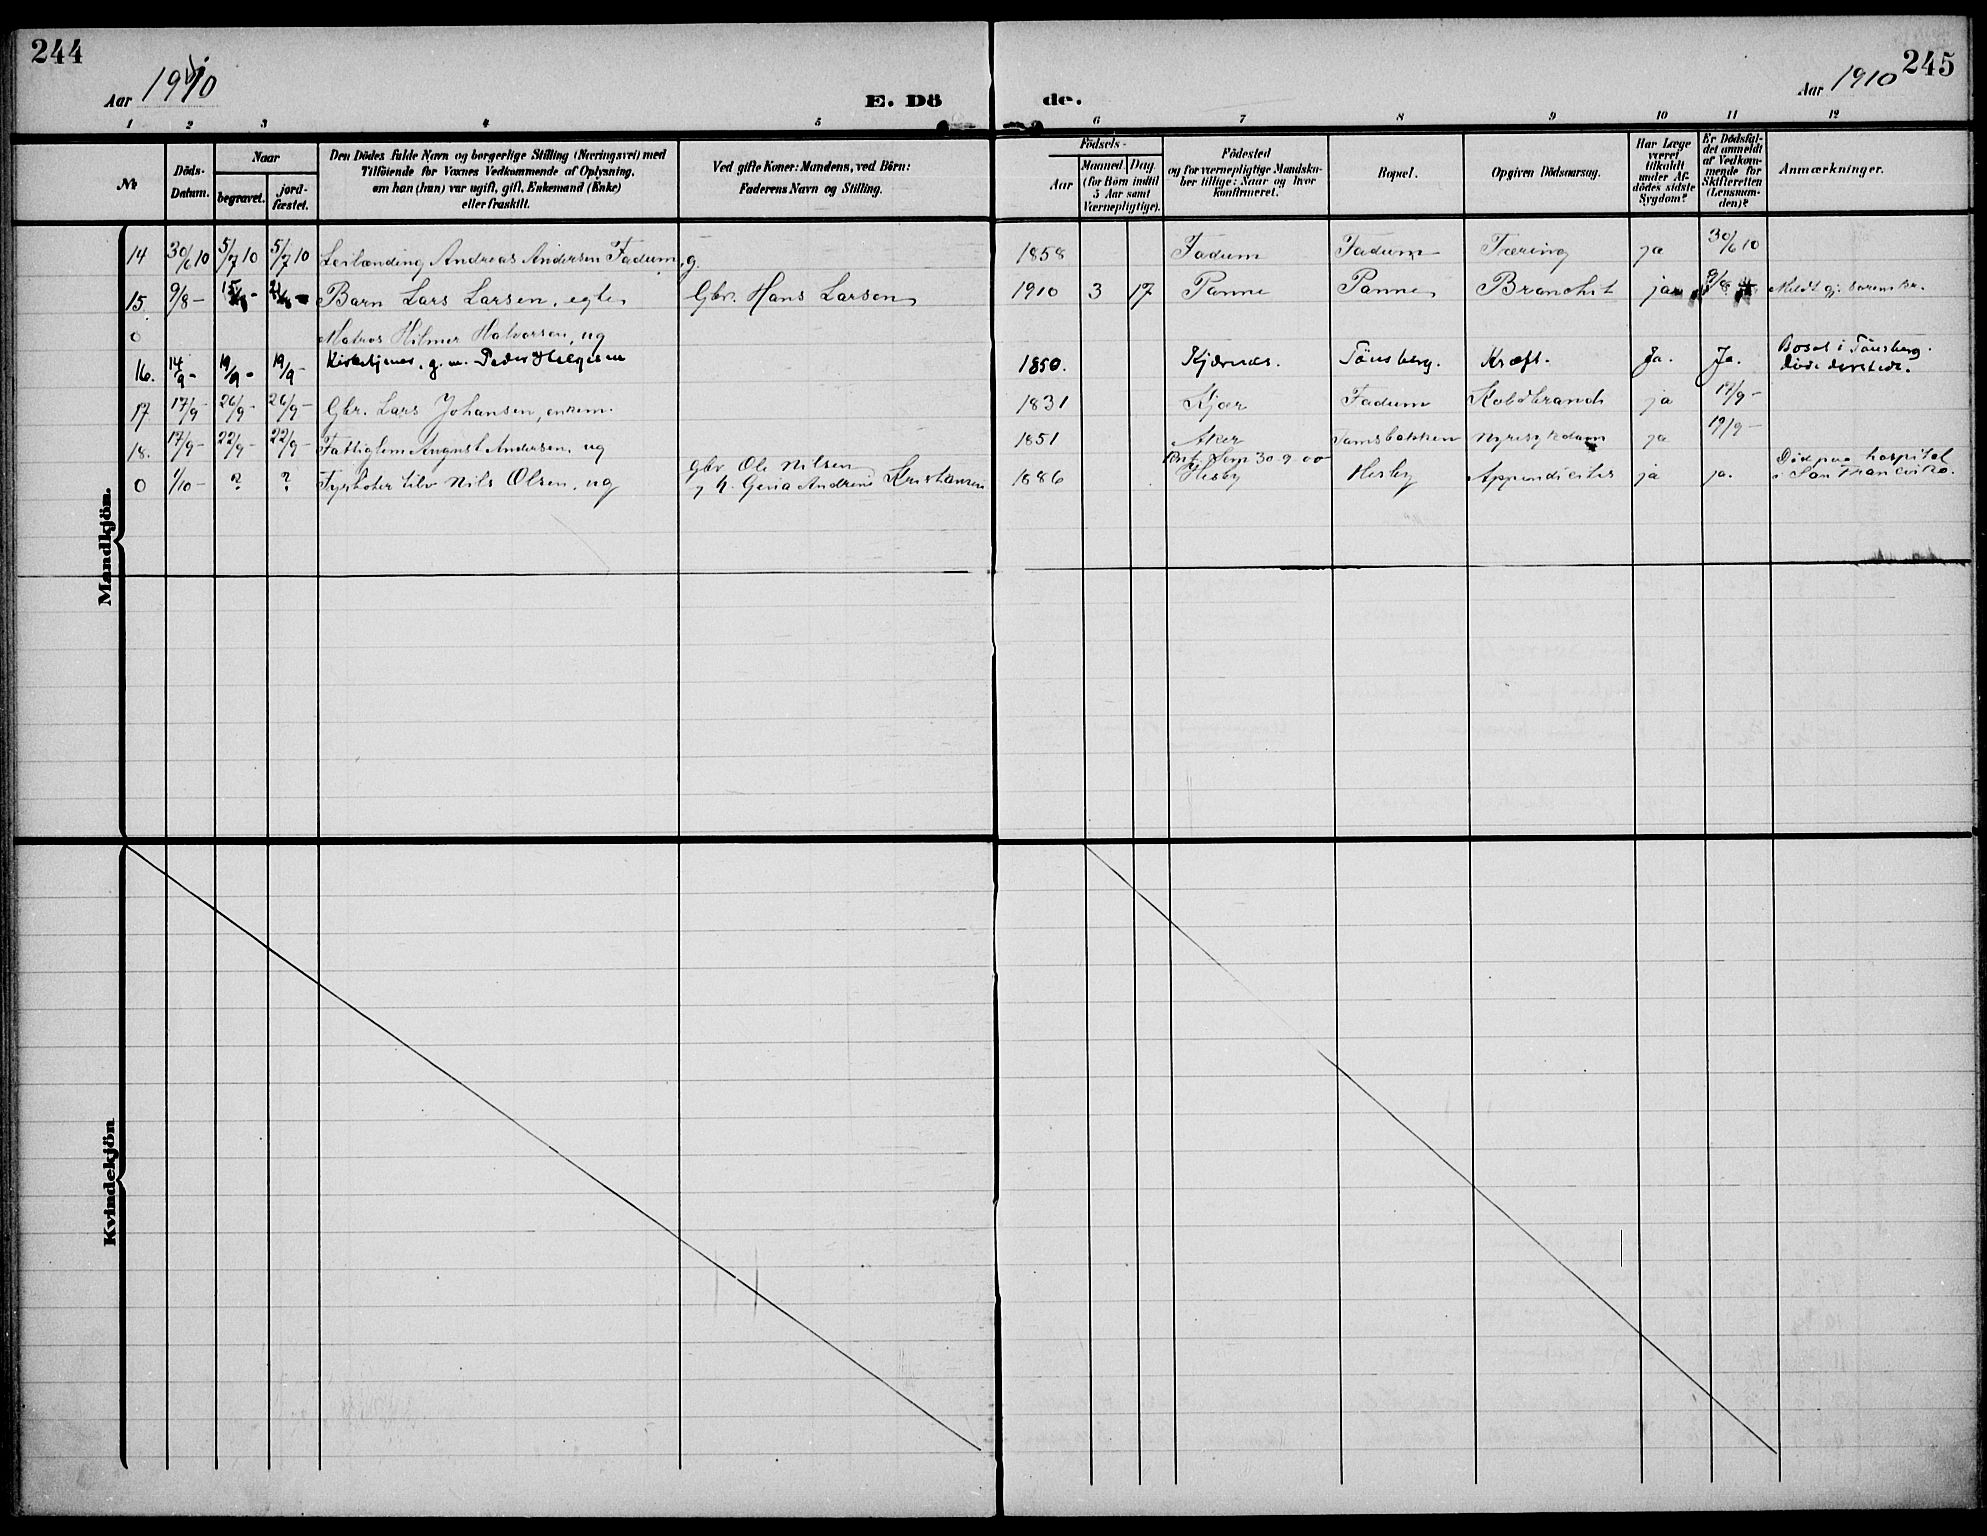 244
Aar 1910
E. Dö
de.
Aar 1910
245
1 2 3 4 5 6 7 8 9 10 11 12
№
Döds-
Datum.
Naar
begravet.
jord-
fæstet.
Den Dödes fulde Navn og borgerlige Stilling (Næringsvei) med
Tilföiende for Voxnes Vedkommende af Oplysning,
om han (hun) var ugift, gift, Enkemand (Enke)
eller fraskilt.
Ved gifte Koner: Mandens, ved Börn:
Faderens Navn og Stilling.
Födsels-
Aar
Maaned Dag
(for Börn indtil
5 Aar samt
Værnepligtige).
Födested
og for værnepligtige Mandska-
ber tillige: Naar og hvor
konfirmeret.
Bopæl.
Opgiven Dödsaarsag.
Har Læge
været
tilkaldt
under Af-
dödes sidste
Sygdom?
Er Dödsfal-
det anmeldt
af Vedkom-
mende for
Skifteretten
(Lensman-
den)?
Anmærkninger.
Mandkjön.
14 30/6 10 5/7 10 5/7 10 Leilænding Andreas Andersen Fadum, g. 1858 Fadum Fadum Tæring ja 30/6 10
15. 9/8 – Barn Lars Larsen, egte Gbr. Hans Larsen 1910 3 17 Panne Panne Bronchit ja 9/8
0 Matros Hilmer Halvorsen, ug
16. 14/9 – 19/9 – 19/9 – Kirketjener, g. m. Peder Helgesen 1850. Kjærnes. Tönsberg. Kræft. Ja. Ja. Bosat i Tönsberg.
Döde dersteds.
17. 17/9 – 26/9 – 26/9 – Gbr. Lars Johansen, enkem. 1831 Kjær Fadum Koldbrand ja 19/9 –
18. 17/9 – 22/9 – 22/9 – Fattiglem August Andersen, ug 1851 Aker Tamsbakken Nyresykdom ja 19/9 –
0 1/10 – ? ? Fyrbøter Nils Olsen, ug Gbr. Ole Nilsen
Andrine Kristiansen 1886 30-9-00
Hesby Hesby Appendicites ja ja. Död paa hospital
i San Francisko.
Kvindekjön